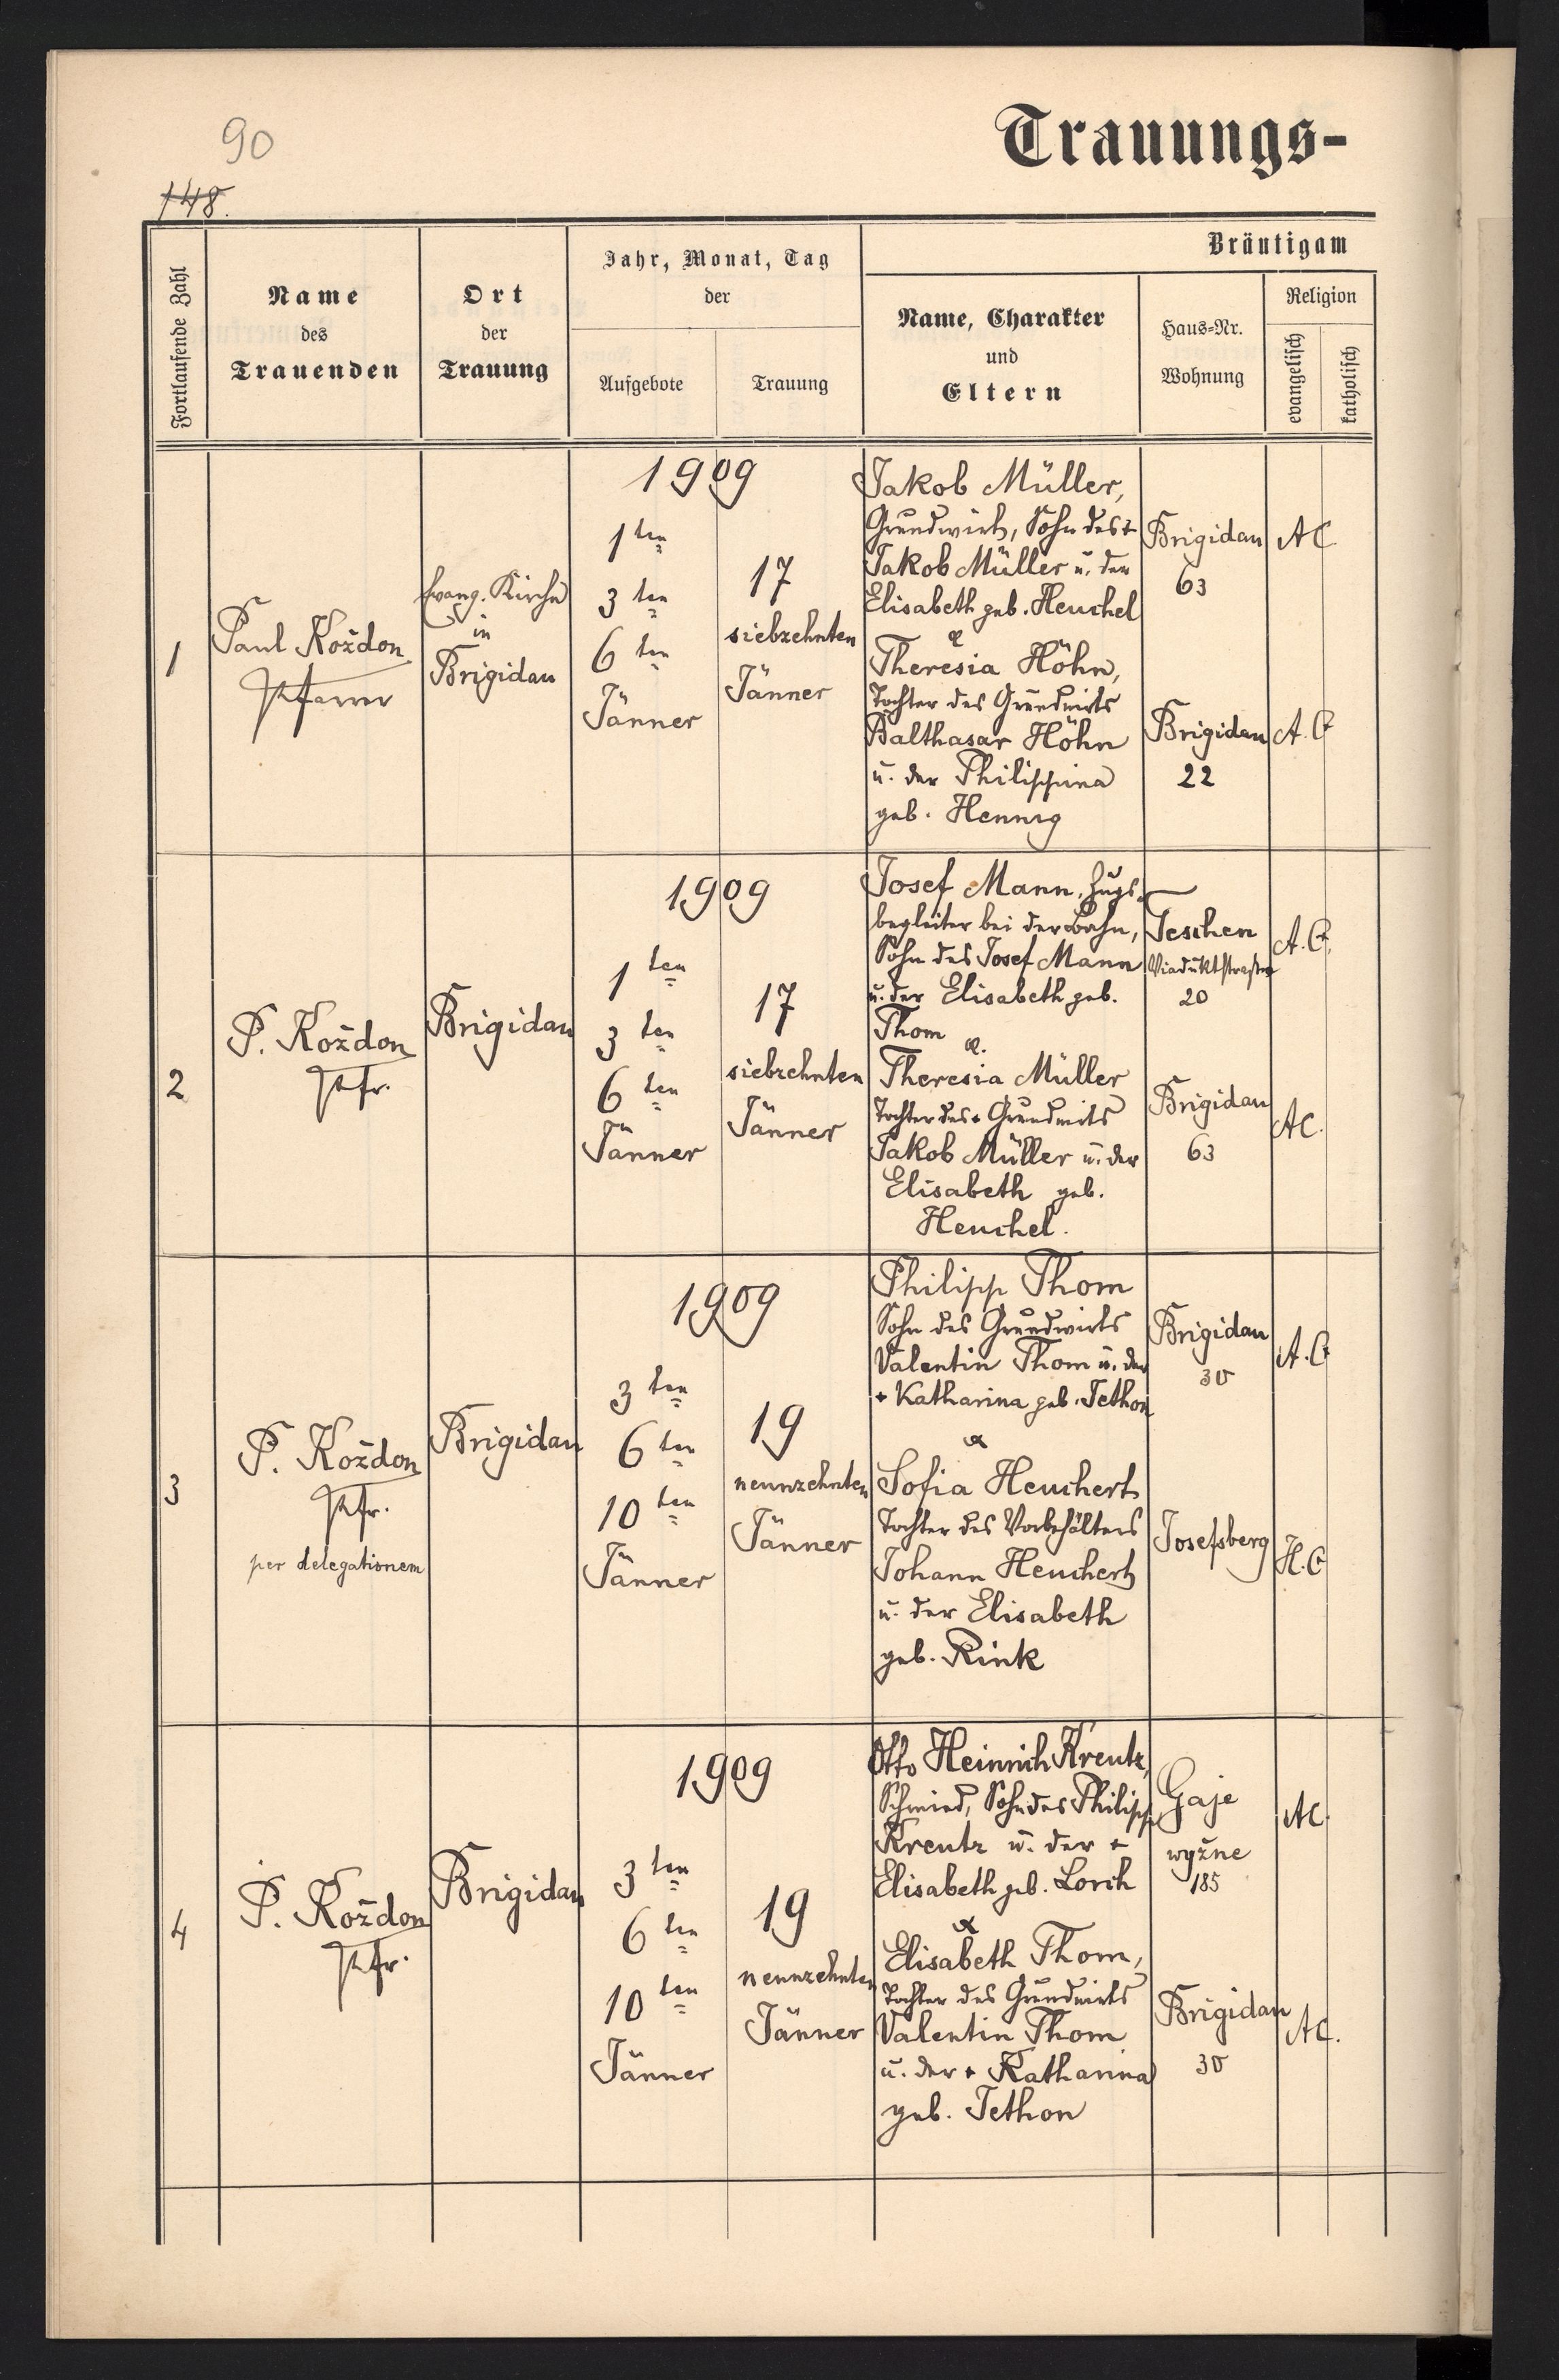 90
148.
Trauungs-
Fortlaufende Zahl
Name
des
Trauenden
Ort
der
Trauung
Jahr, Monat, Tag
der
Aufgebote
Trauung
Bräutigam
Name, Charakter
und
Eltern
Haus-Nr.
Wohnung
Religion
evangelisch
katholisch
1
Paul Kożdon
Pfarrer
Evang. Kirche
in
Brigidau
1909
1ten
3ten
6ten
Jänner
17
siebzehnten
Jänner
Jakob Müller,
Grundwirth, Sohn des +
Jakob Müller u. der
Elisabeth geb. Heuchel
&
Theresia Höhn,
Tochter des Grundwirts
Balthasar Höhn
u. der Philippina
geb. Hennig
Brigidau
63
AC
Brigidau
22
A. C
2
P. Kożdon
Pfr.
Brigidau
1909
1ten
3ten
6ten
Jänner
17
siebzehnten
Jänner
Josef Mann, Zugs-
begleiter bei der Bahn,
Sohn des Josef Mann
u. der Elisabeth geb.
Thom
&
Theresia Müller
Tochter des + Grundwirts
Jakob Müller u. der
Elisabeth geb.
Heuchel.
Teschen
Viaduktstrasse
20
A. C.
Brigidau
63
AC.
3
P. Kożdon
Pfr.
per delegationem
Brigidau
1909
3ten
6ten
10ten
Jänner
19
neunzehnten
Jänner
Philipp Thom
Sohn des Grundwirts
Valentin Thom u. der
+ Katharina geb. Tethon
&
Sofia Heuchert
Tochter des Vorbehälters
Johann Heuchert
u. der Elisabeth
geb. Rink
Brigidau
30
A. C
Josefsberg
H. C
4
P. Kożdon
Pfr.
Brigidau
1909
3ten
6ten
10ten
Jänner
19
neunzehnten
Jänner
Otto Heinrich Kreutz,
Schmied, Sohn des Philipp
Kreutz u. der +
Elisabeth geb. Lorch
&
Elisabeth Thom,
Tochter des Grundwirts
Valentin Thom
u. der + Katharina
geb. Tethon
Gaje
wyżne
185
AC.
Brigidau
30
AC.